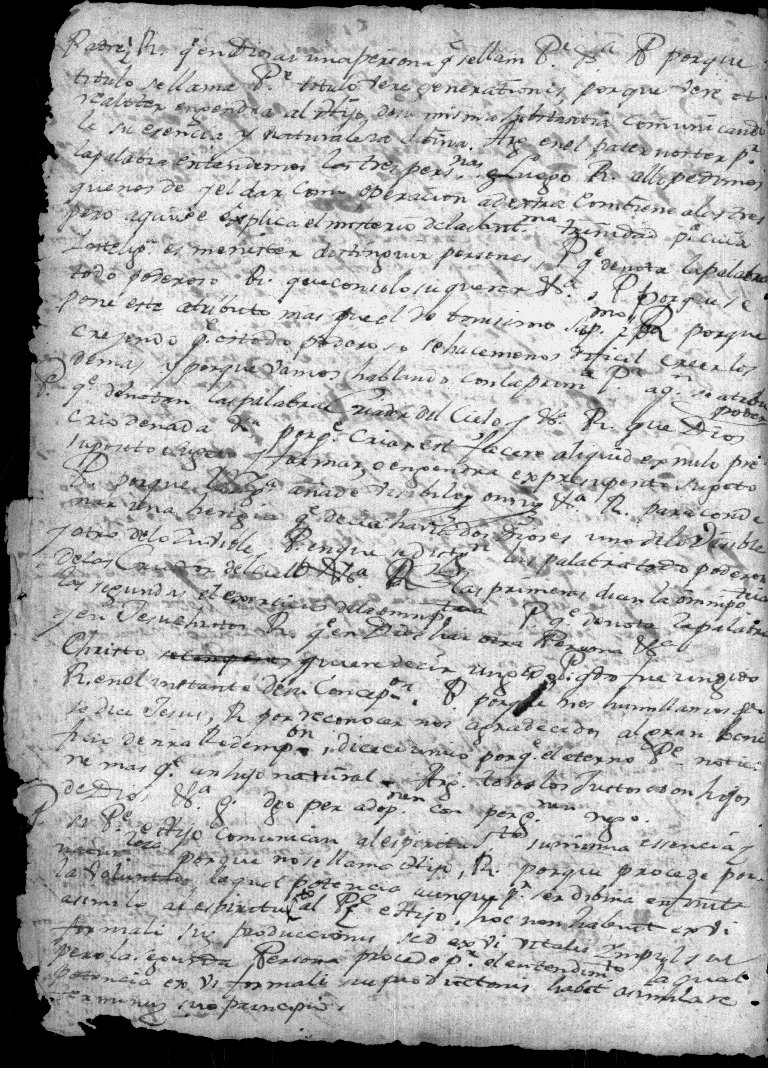 Padre? R. q̃ en Dios ai una persona q̃ se llam P.e &.a P porque
titulo se llama P.e titulo vere generationis, porque vere et
realiter engendra al Hijo de su misma substantia comunicando
le su esencia y naturaleza divina. Arg. en el pater noster p.r
la palabra entendemos las tres pers.nas luego R. alli pedimos
que nos de y el dar como operacion ad extra combiene a los tres
pero aqui se explica el misterio de la sant.ma trinidad p.a cuia
Intelig.a es menester distinguir personas, P. q̃ denota la palabra
todo poderoso R. que con solo su querer &.a, P. porque se
pone este atributo mas que el de bonisimo sap.mo R porque
creiendo q̃ es todo poderoso se hace menos dificil creer los
demas, y porque vamos hablando con la prim.a P.a a q.n se atribu
P. q̃ denotan las palabras criador del Cielo, y &. R. que Dios
poten
crio de nada &.a porq̃ Criar est facere aliquid ex nulo pre
suposito sugeto y formar, o engendrar ex presuposito supoto
P. porque añade visibiliũ omniũ &.a R. para conde
nar una heregia q̃ decia havia dos Dioses uno de lo visible
y otro de lo invisible. P. en que se dis las palabras todo poderoso
de las Criador del cielo &.a R las primeras dicen la omnipo
las segundas el exercicio de la omnip.tencia P. q̃ denota la palabra
y en Jesuchristo R. q̃ en Dios hai otra Persona &.a
Christo quiere decir ungido P. q̃do fue ungido
R. en el instante de su Concep.on. P. porque nos humillamos q.do
se dice Jesus, R. por reconocernos agradecidos al gran bene
ficio de nra Redemp.on, dice unico porq̃ el eterno P.e no tie
ne mas q̃ un hijo natural. Arg. todos los Justos son hijos
de Dios, &.a g. dgo per adop.nem con per g.nem nego.
P es P.e e Hijo comunican al espiritu S.to su misma essencia y
naturaleza porque no se llama Hijo, R. porque procede por
la voluntad, la qual potencia aunque p.r ser divina en
asimilo al espiritu S.to al P.e e Hijo, hoc non habuit ex vi
formali sue productionis sed ex vi vitalis Ympulsus
pero la segunda Persona procede p.r el entendim.to la qual
potencia ex vi formali sue productionis habet asimilare
terminum suo principio.